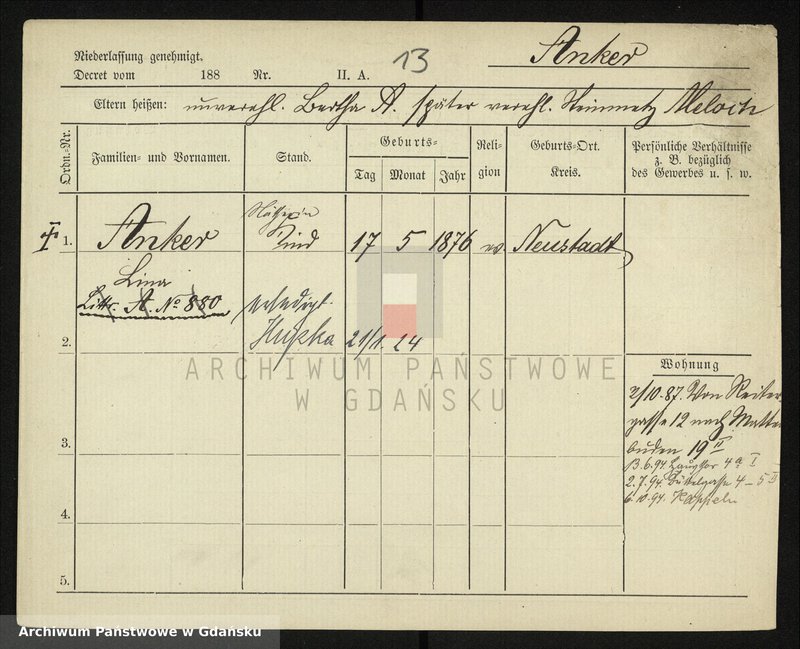 Anker
13
Niederlassung genehmigt.
Decret vom 188 Nr. II. A.
Eltern heißen: unverehl. Bertha A. später verehl. Steinmetz Meloch
Ordn.-Nr.
Familien- und Vornamen.
Stand.
Geburts-
Tag Monat Jahr
Reli-
gion
Geburts-Ort.
Kreis.
Persönliche Verhältnisse
z. B. bezüglich
des Gewerbes u. s. w.
1. Anker Kind 17 5 1876 ev Neustadt
Lina
Littr. A. No 880
erledigt
Hupka 21/1. 24
2.
Wohnung
2/10.87. Von Reiter
gasse 12 nach Matten
buden 19 II
13.6.94. 4a I
2.7.94. 4-5 II
6.10.94.
3.
4.
5.
ARCHIWUM PAŃSTWOWE
W GDAŃSKU
Archiwum Państwowe w Gdańsku